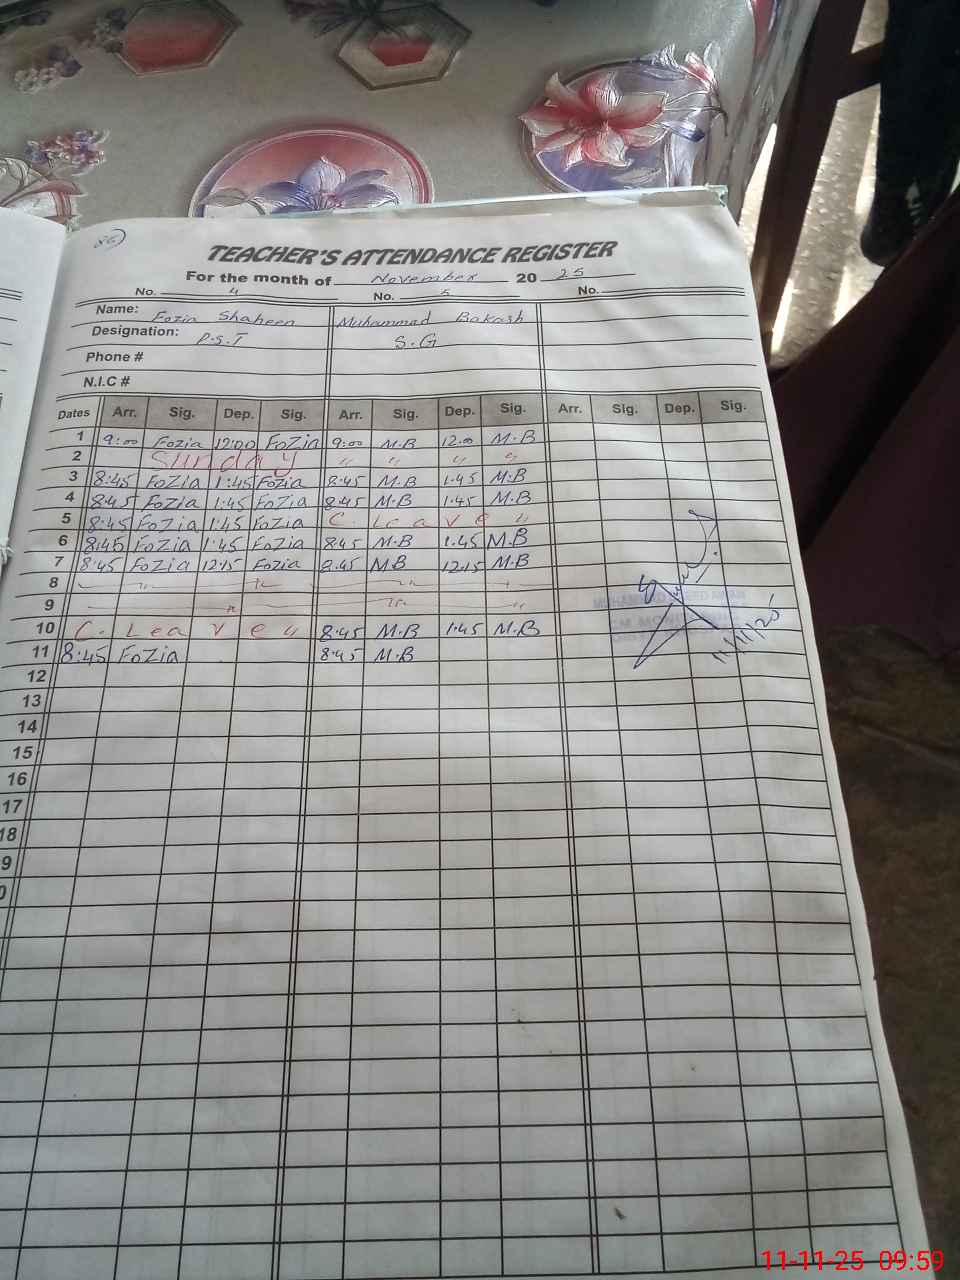 86
TEACHER'S ATTENDANCE REGISTER
For the month of November 20 25
No. 4 No. 5 No.
Name: Fozia Shaheen Muhammad Bakash
Designation: P.S.T S.G
Phone #
N.I.C #
Dates Arr. Sig. Dep. Sig. Arr. Sig. Dep. Sig. Arr. Sig. Dep. Sig.
1 9:00 Fozia 12:00 FoZia 9:00 M.B 12.00 M.B
2 Sunday " " " "
3 8:45 FoZia 1:45 Fozia 8:45 M.B 1.45 M.B
4 8:45 FoZia 1:45 FoZia 8:45 M.B 1.45 M.B
5 8:45 FoZia 1:45 FoZia C. Leave "
6 8:45 FoZia 1:45 FoZia 8:45 M.B 1.45 M.B
7 8:45 FoZia 12:15 Fozia 8:45 MB 12:15 M.B
8 " " " "
9 " " "
10 C. Leave " 8:45 M.B 1.45 M.B
11 8:45 FoZia 8:45 M.B
11/11/25
12
13
14
15
16
17
18
9
0
11-11-25 09:59